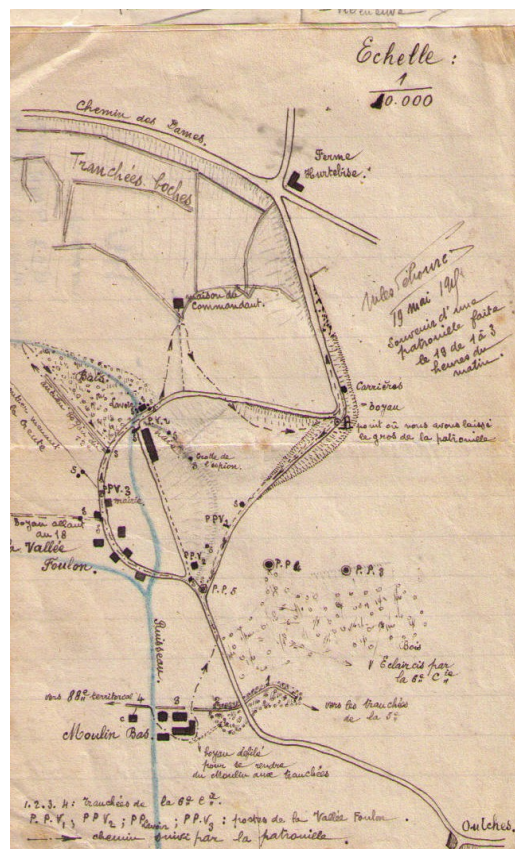 Echelle :
1
10.000
Chemin des Dames.
Ferme
Hurtebise.
Tranchées boches
maison du
Commandant.
Jules
19 mai
Souvenir d'une
patrouille faite
le 19 de 1 à 3
heures du
matin.
Bois
Lavoir
P.P.V.
Carrières
boyau
point où nous avons laissé
le gros de la patrouille
Grotte de
l'espion.
S
S
S
S
la Creute
PPV.3
mairie
PPV
boyau allant
au 18
la Vallée
Foulon.
PPV2
P.P.5
P.P.
P.P.3
Bois
Eclaircis par
la 6e Cie
Ruisseau
vers 88e territorial
4
3
1
c
vers les tranchées
de la 5e
Moulin Bas.
boyau défilé
pour se rendre
du Moulin aux tranchées
1.2.3.4: tranchées de la 6e Cie.
P.P.V1; PPV2; PPLavoir; PP.V3: postes de la Vallée Foulon.
chemin suivi par la patrouille.
Oulches.